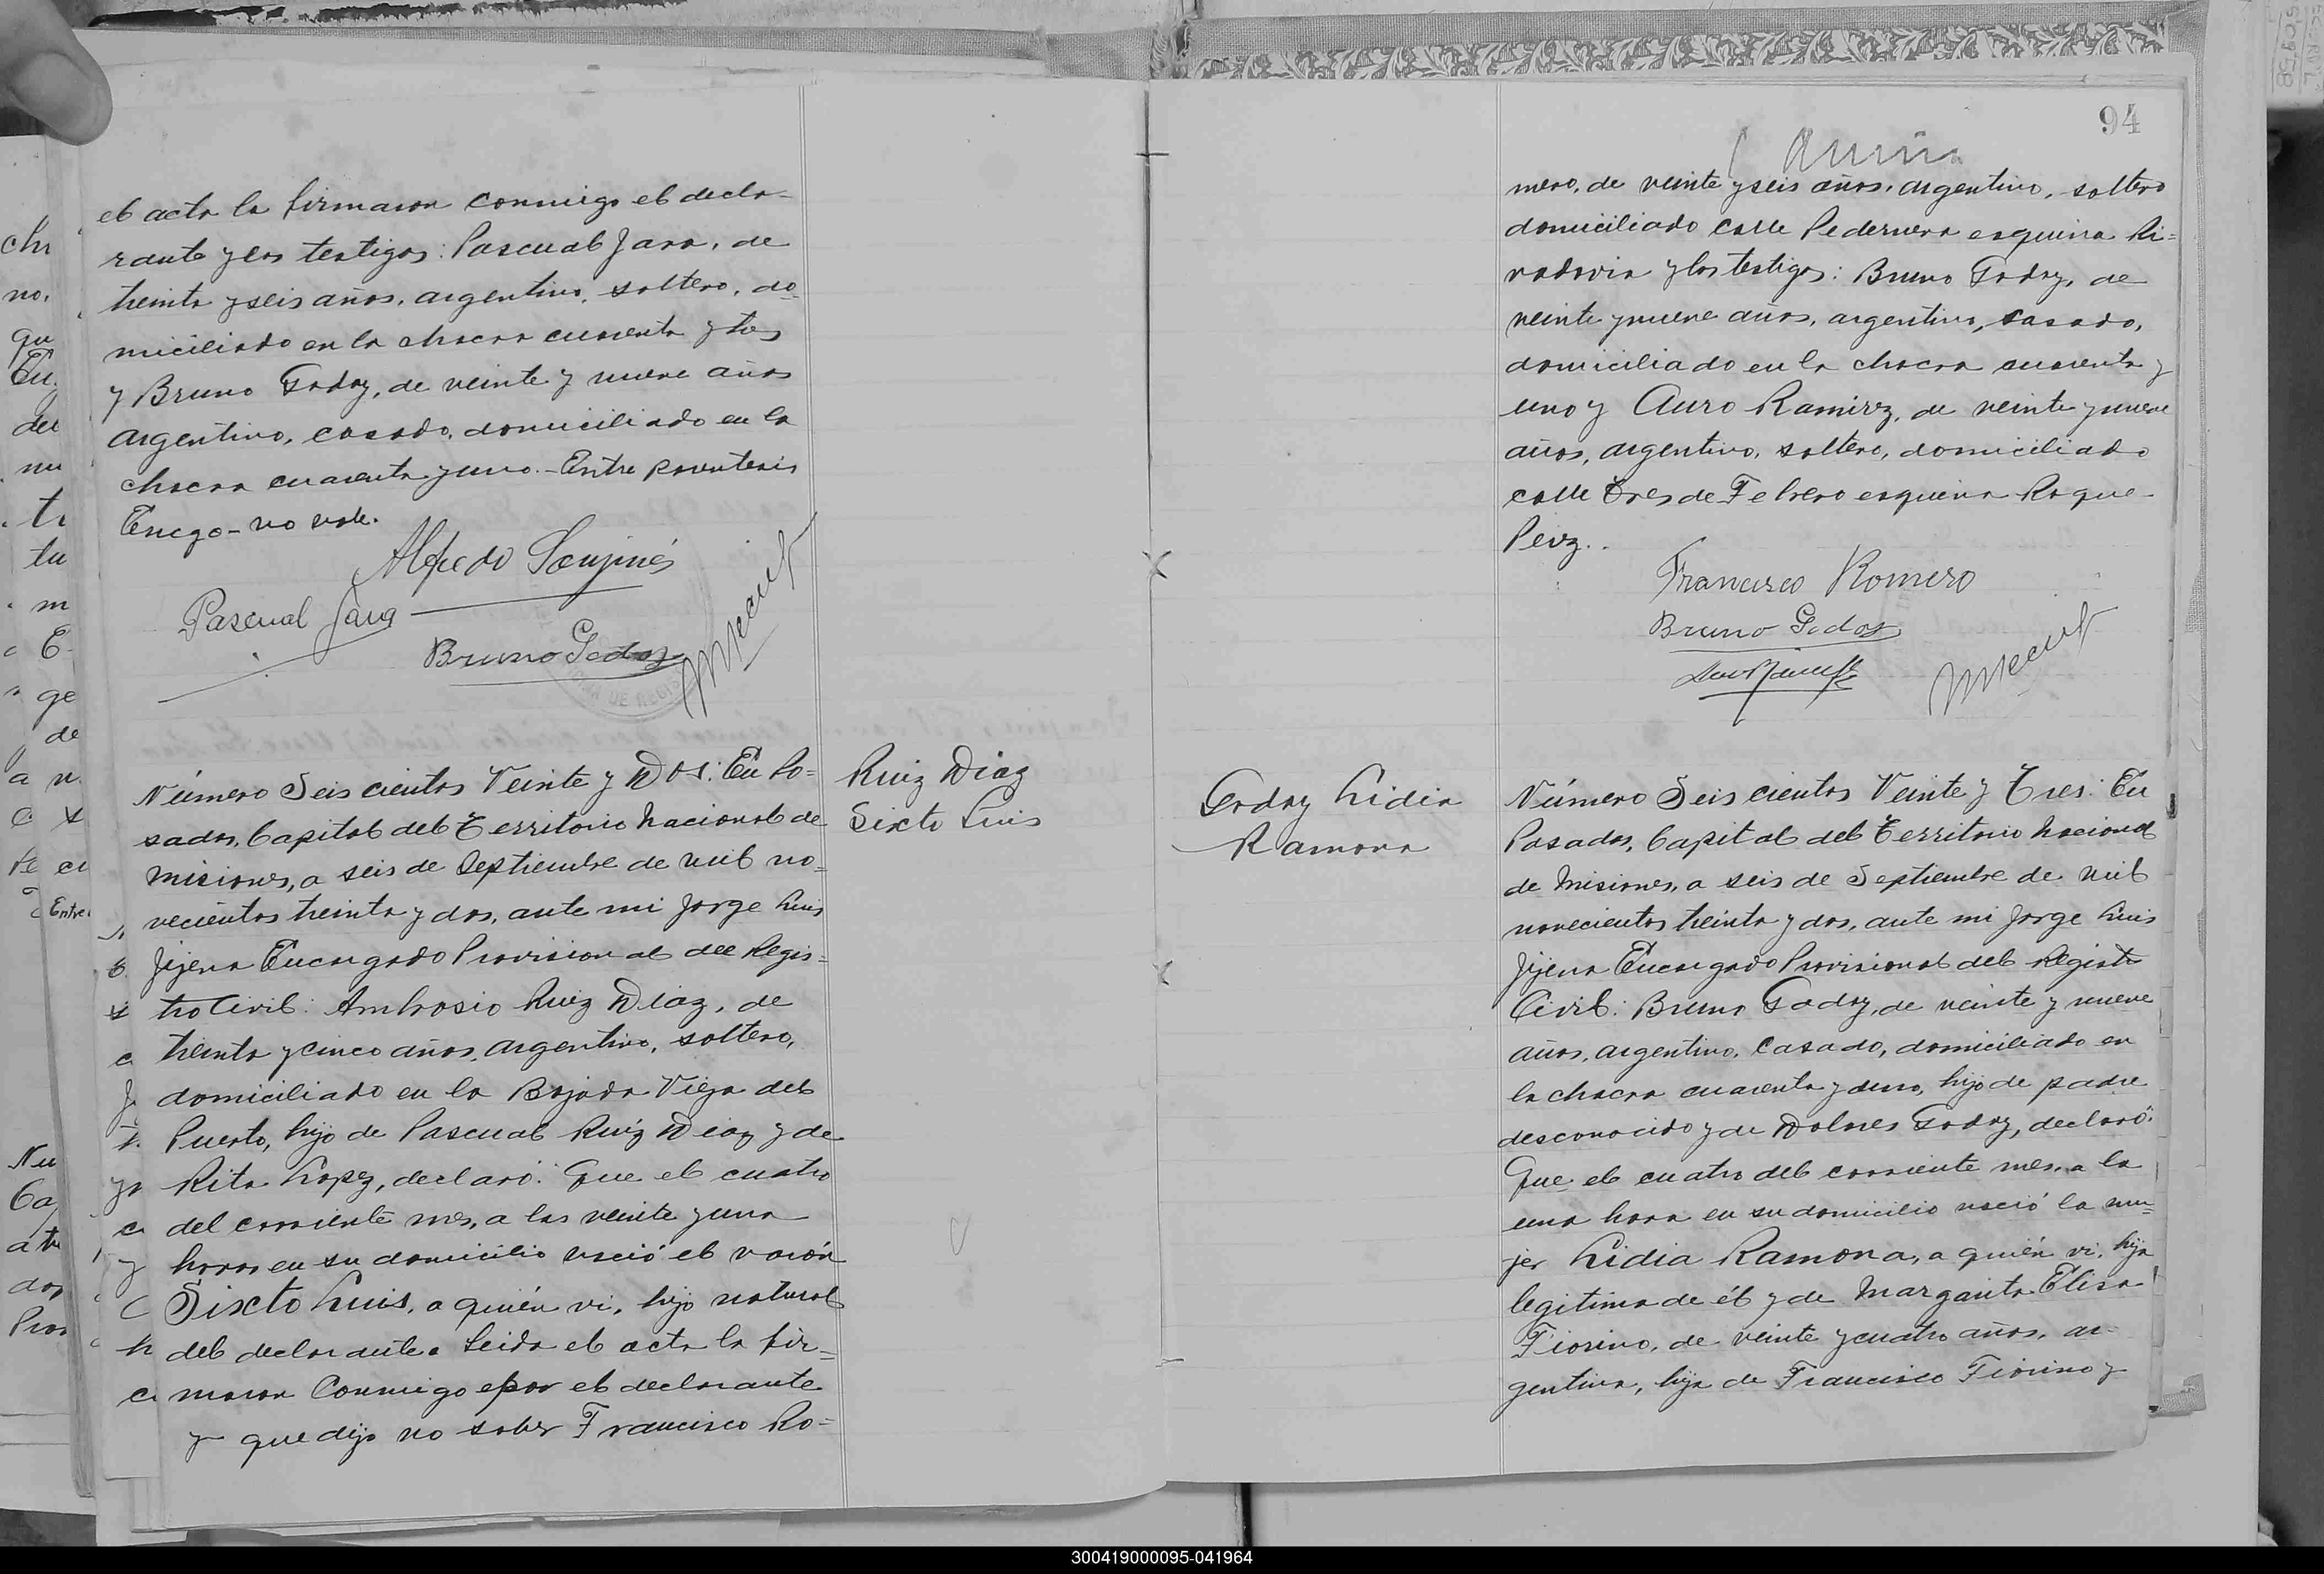 el acta la firmaron conmigo el decla-
rante y los testigos: Pascual Jara, de
treinta y seis años, argentino, soltero, do-
miciliado en la chacra cuarenta y tres
y Bruno Godoy, de veinte y nueve años
argentino, casado, domiciliado en la
chacra cuarenta y uno.- Entre parentesis
no vale.
Alfredo
Pascual Jara
Bruno Godoy
Número Seis cientos Veinte y Dos: En Po=
sadas, Capital del Territorio Nacional de
Misiones, a seis de Septiembre de mil no=
vecientos treinta y dos, ante mi Jorge Luis
Jijena Encargado Provisional del Regis=
tro Civil: Ambrosio Ruiz Diaz, de
treinta y cinco años, argentino, soltero,
domiciliado en la Bajada Vieja del
Puerto, hijo de Pascual Ruiz Diaz y de
Rita Lopez, declaró: Que el cuatro
del corriente mes, a las veinte y una
horas en su domicilio nació el varón
Sixto Luis, a quién vi, hijo natural
del declarante. Leida el acta la fir=
maron Conmigo por el declarante
que dijo no saber Francisco Ro=
Ruiz Diaz
Sixto Luis
94
mero, de veinte y seis años, argentino, soltero
domiciliado calle Pedernera esquina Ri=
vadavia y los testigos: Bruno Godoy, de
veinte y nueve años, argentino, casado,
domiciliado en la chacra cuarenta y
uno y Auro Ramirez, de veinte y nueve
años, argentino, soltero, domiciliado
calle Tres de Febrero esquina Roque
Perez..
Francisco Romero
Bruno Godoy
Godoy Lidia
Ramona
Número Seis cientos Veinte y Tres: En
Posadas, Capital del Territorio Nacional
de Misiones, a seis de Septiembre de mil
novecientos treinta y dos, ante mi Jorge Luis
Jijena Encargado Provisional del Registro
Civil: Bruno Godoy, de veinte y nueve
años, argentino, casado, domiciliado en
la chacra cuarenta y uno, hijo de padre
desconocido y de Dolores Godoy, declaró:
Que el cuatro del corriente mes, a la
una hora en su domicilio nació la mu=
jer Lidia Ramona, a quién vi, hija
legitima de él y de Margarita Elisa
Fiorino, de veinte y cuatro años, ar-
gentina, hija de Francisco Fiorino y
300419000095-041964